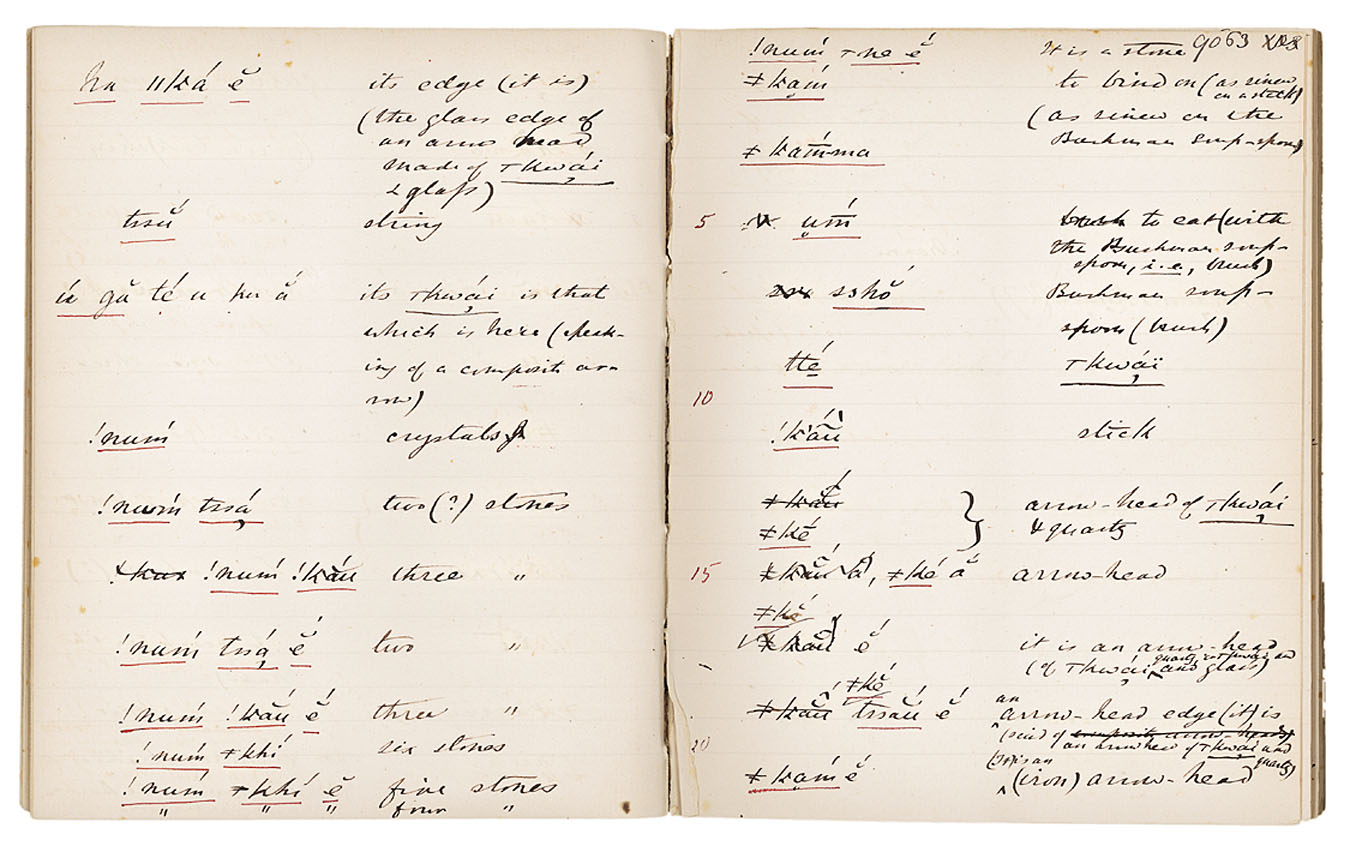 ha ǁká ĕ́ its edge (it is)
(the glass edge of
an arrow head
made of ꞇkwái
& glass)
tssŭ́ string
gă té u ku ắ its ꞇkwái is that
which is here (speak-
ing of a composite ar-
row)
!num̄́ crystals
!num̄́ tssá̦ two (?) stones
!num̄́ !kắu three "
!num̄́ tssá̦ ĕ́ two "
!num̄́ !kắu ĕ́ three "
!num̄́ ǂkhí six stones
!num̄́ ǂkhí ĕ́ five stones
" " " four "
9063
!num̄́ ꞇne ĕ́ It is a stone
ǂkam̄́ to bind on (as sinew
on a stick)
(as sinew on the
ǂkam̄́-ma Bushman soup-spoon)
5 um̄́ to eat (with
the Bushman soup-
spoon, i.e., brush)
sshŏ́ Bushman soup-
spoon (brush)
tté ꞇkwái̦
10
!kắu stick
ǂkắu
ǂké } arrow-head of ꞇkwái
& quartz
15 ǂkắu ắ, ǂké ắ arrow-head
ǂkĕ́
ǂkắu ĕ́ it is an arrow-head
(of ꞇkwái and quartz, or ꞇkwái and glass)
ǂkĕ́
ǂkắu tssắu ĕ́ an arrow-head edge (it) is
(said of composite arrow-heads)
an arrowhead of ꞇkwái and
quartz)
20
ǂkam̄́ ĕ́ (It) is an
(iron) arrow-head